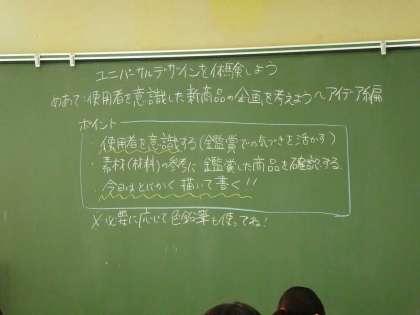 ユニバーサルデザインを体験しよう
めあて:使用者を意識した新商品の企画を考えよう~アイデア編
ポイント
・使用者を意識する(鑑賞での気づきを活かす)
・素材(材料)の参考に鑑賞した商品を確認する
・今日はとにかく描いて書く!!
※必要に応じて色鉛筆も使ってね!